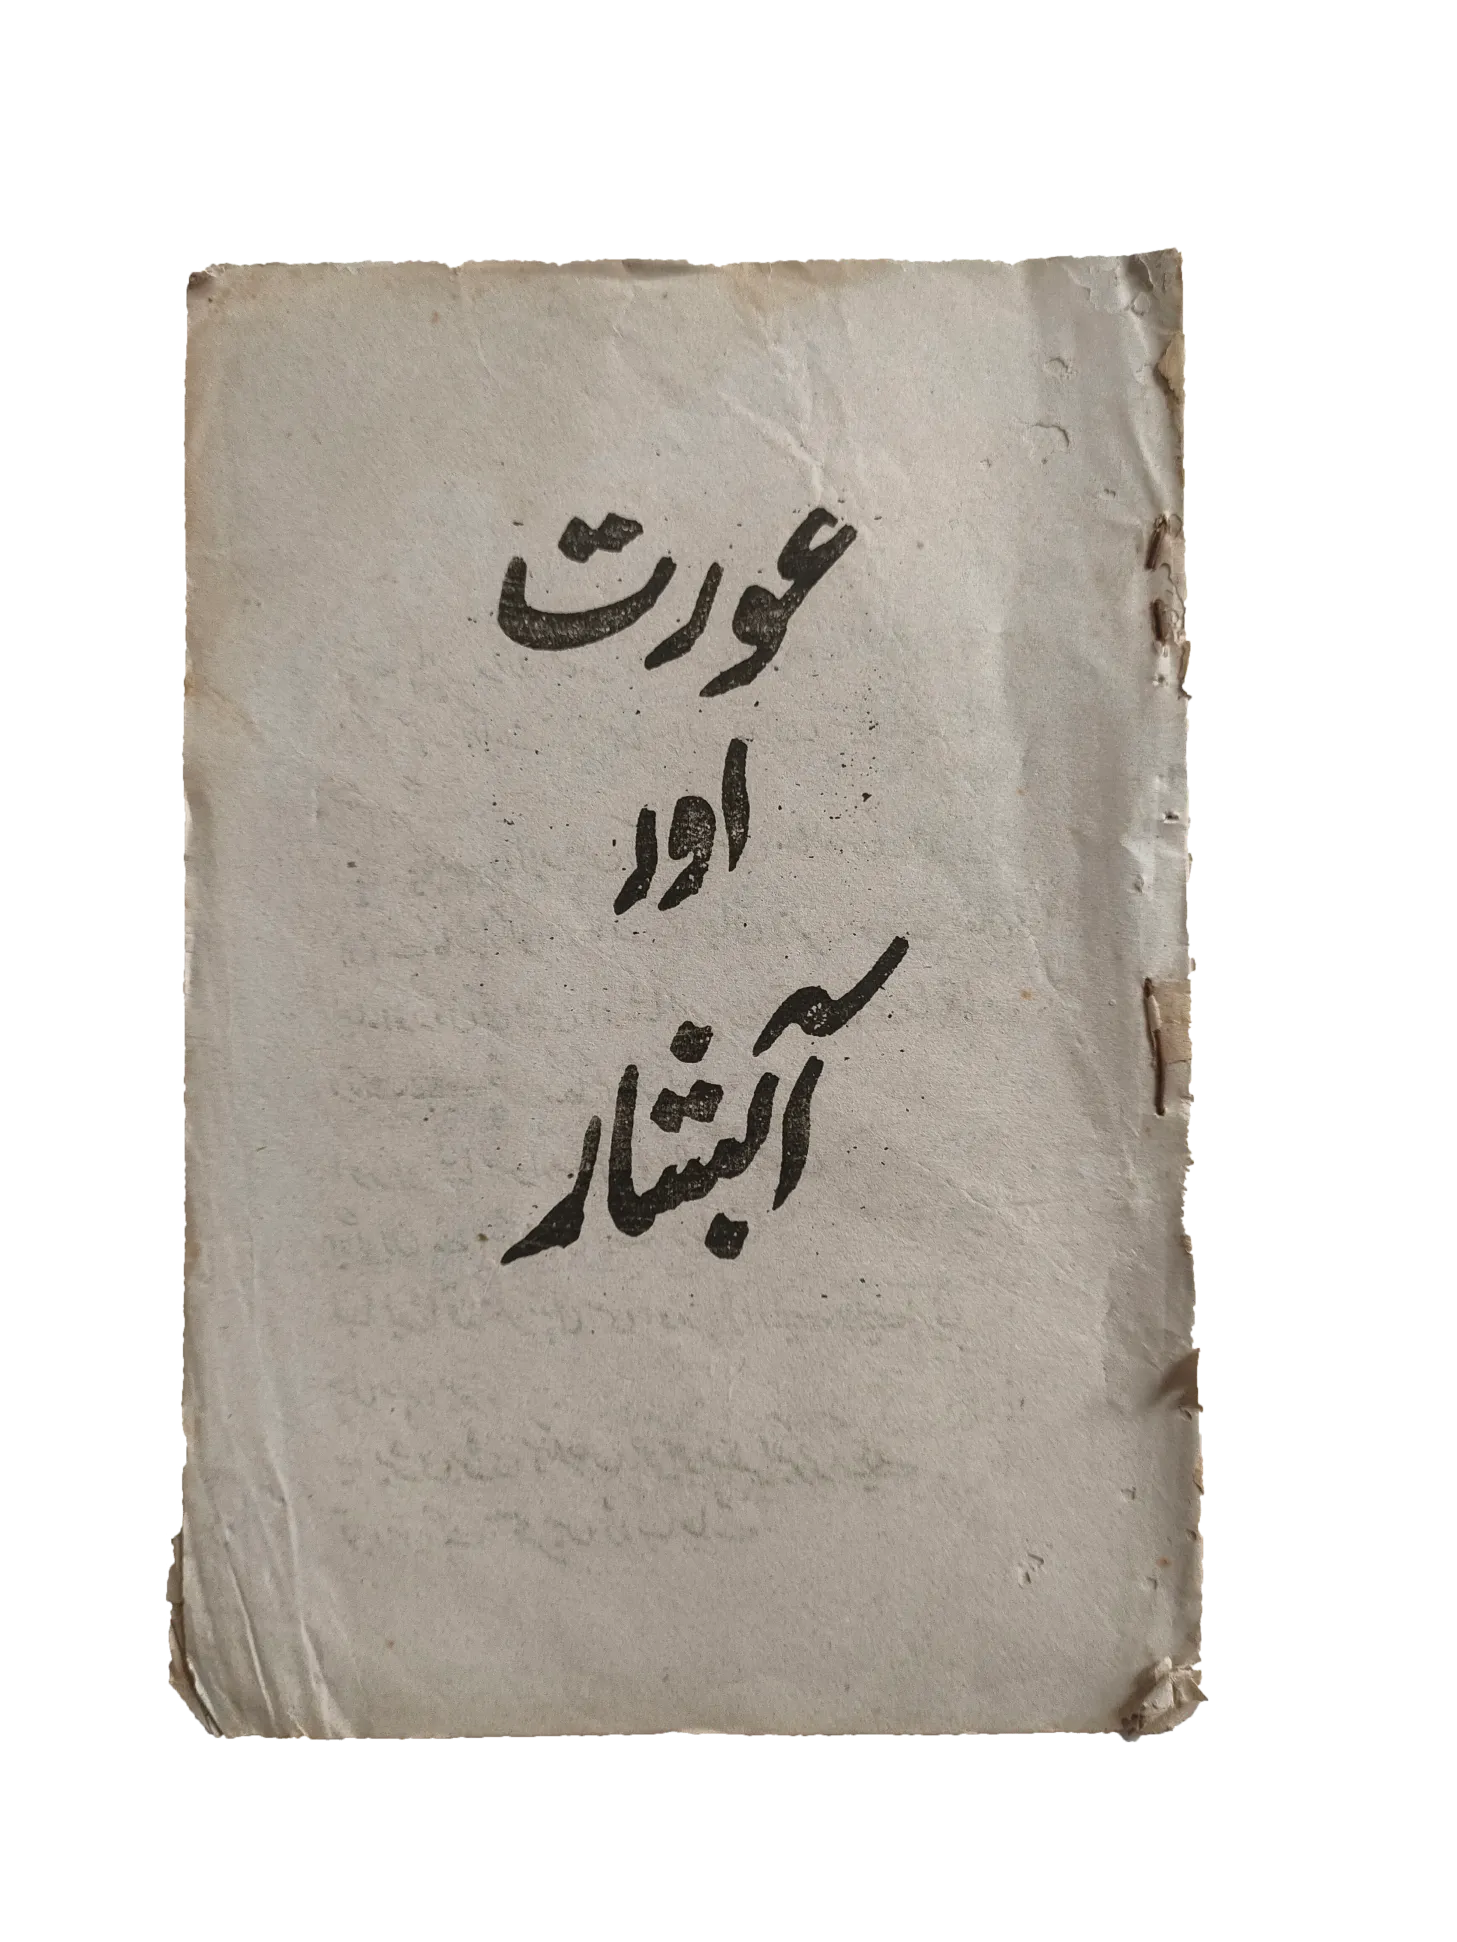 عورت
اور
آبشار